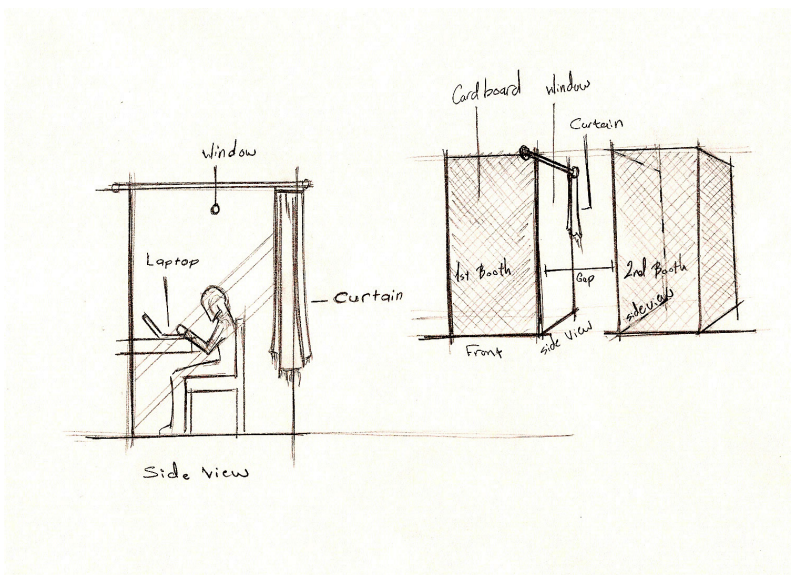 Window
Laptop
Curtain
Side View
Cardboard
Window
Curtain
1st Booth
Gap
2nd Booth
side view
Front
side view